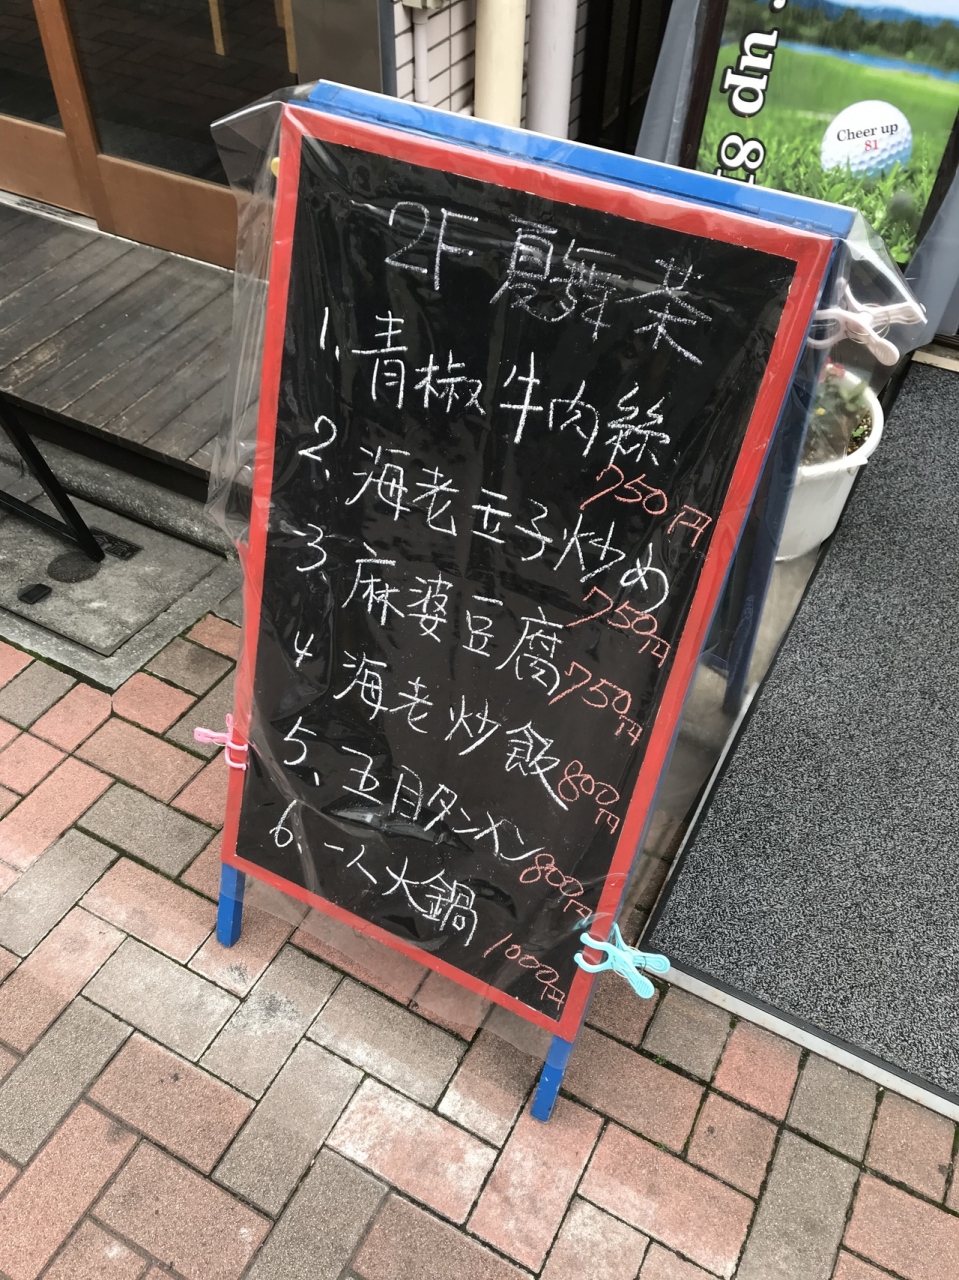 2F 夏舞茶
1、青椒牛肉絲
750円
2、海老玉子炒め
750円
3 麻婆豆腐 750円
4 海老炒飯 800円
5、五目タンメン 800円
6、一人火鍋
1000円
Cheer up
81